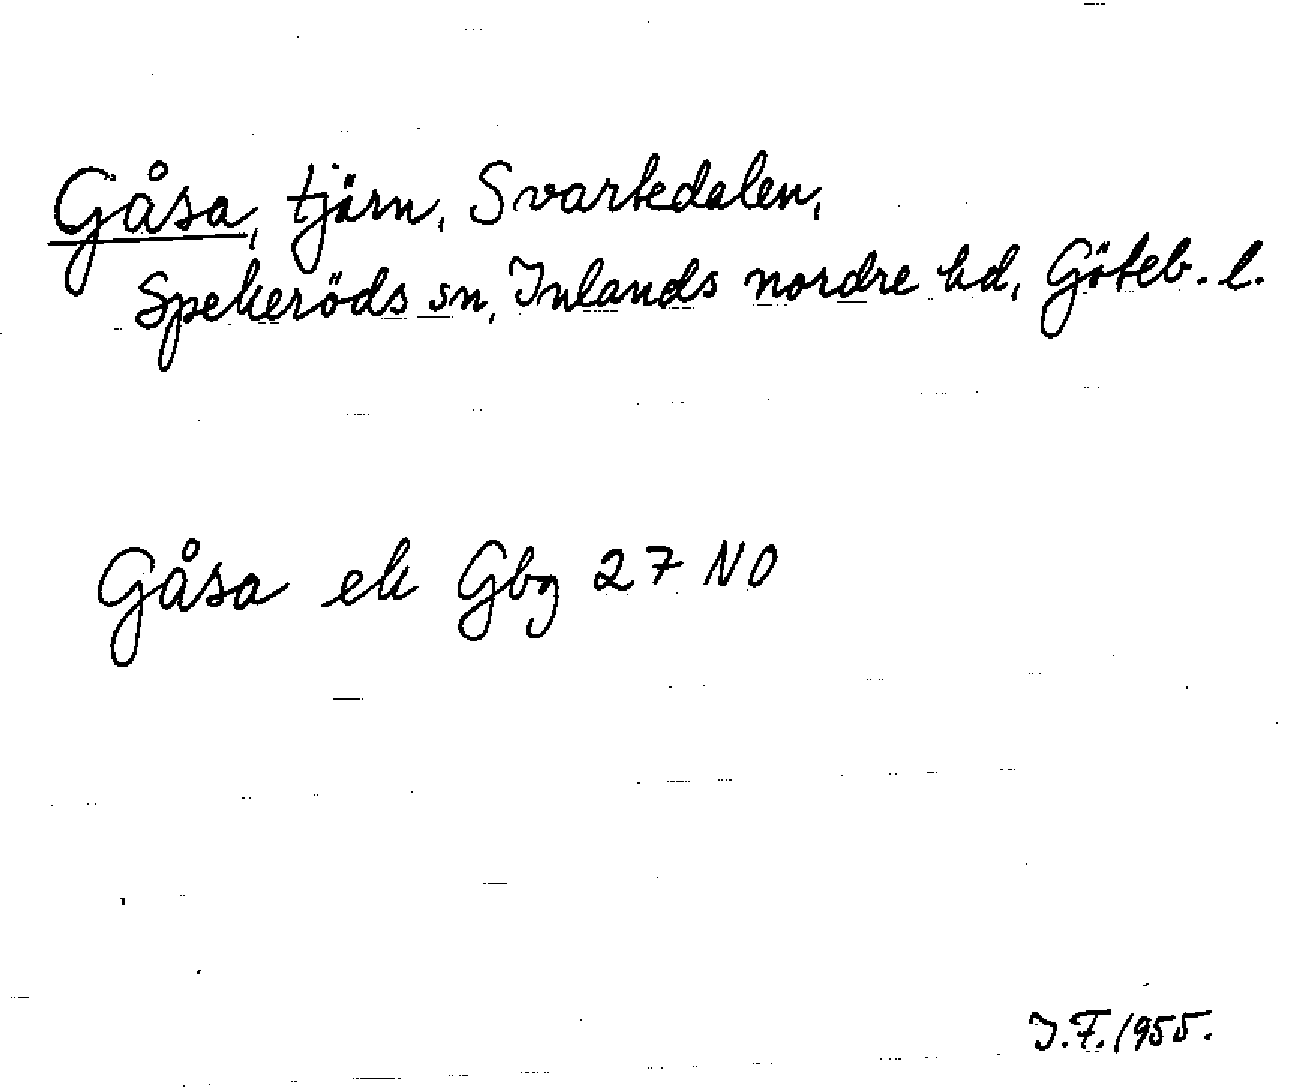 Gåsa, tjärn, Svartedalen,
Spekeröds sn, Inlands nordre hd, Göteb. l.
Gåsa ek Gbg 27 NO
I.F. 1955.